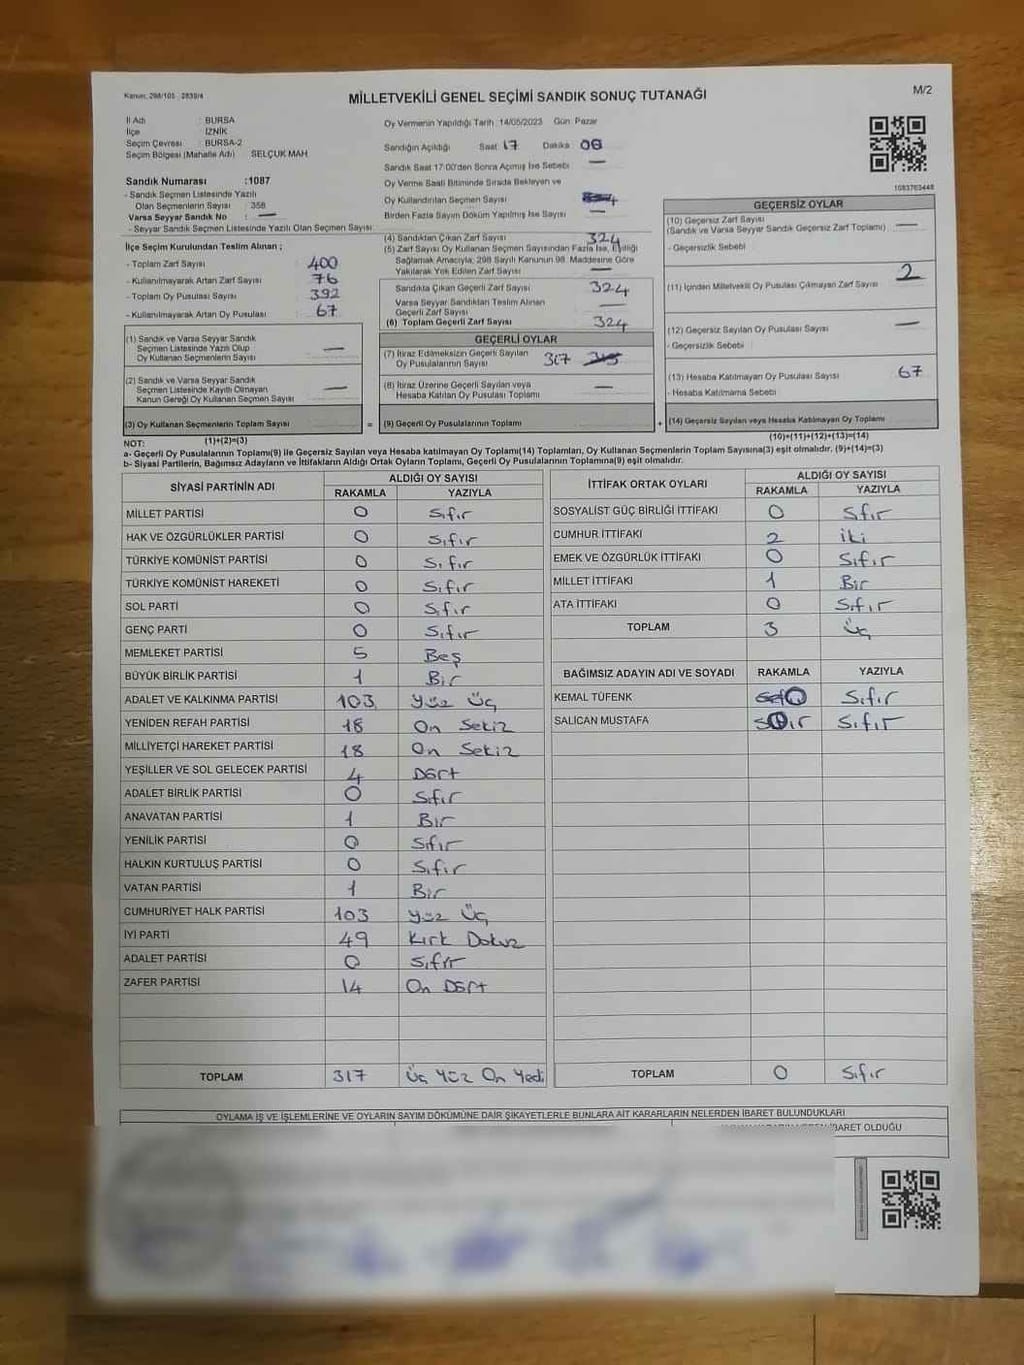 Kanun: 298/105 2839/4
MİLLETVEKİLİ GENEL SEÇİMİ SANDIK SONUÇ TUTANAĞI
M/2
İl Adı : BURSA
İlçe : İZNİK
Seçim Çevresi : BURSA-2
Seçim Bölgesi (Mahalle Adı) SELÇUK MAH
Sandık Numarası :1087
- Sandık Seçmen Listesinde Yazılı
Olan Seçmenlerin Sayısı : 358
Varsa Seyyar Sandık No : —
- Seyyar Sandık Seçmen Listesinde Yazılı Olan Seçmen Sayısı
İlçe Seçim Kurulundan Teslim Alınan ;
- Toplam Zarf Sayısı 400
- Kullanılmayarak Artan Zarf Sayısı 76
- Toplam Oy Pusulası Sayısı 392
- Kullanılmayarak Artan Oy Pusulası 67
(1) Sandık ve Varsa Seyyar Sandık
Seçmen Listesinde Yazılı Olup
Oy Kullanan Seçmenlerin Sayısı —
(2) Sandık ve Varsa Seyyar Sandık
Seçmen Listesinde Kayıtlı Olmayan
Kanun Gereği Oy Kullanan Seçmen Sayısı —
(3) Oy Kullanan Seçmenlerin Toplam Sayısı
(1)+(2)=(3)
Oy Vermenin Yapıldığı Tarih :14/05/2023 Gün: Pazar
Sandığın Açıldığı Saat 17 Dakika 08
Sandık Saat 17:00'den Sonra Açılmış İse Sebebi —
Oy Verme Saati Bitiminde Sırada Bekleyen ve
Oy Kullandırılan Seçmen Sayısı 4
Birden Fazla Sayım Döküm Yapılmış İse Sayısı —
(4) Sandıktan Çıkan Zarf Sayısı 324
(5) Zarf Sayısı Oy Kullanan Seçmen Sayısından Fazla İse, Eşitliği
Sağlamak Amacıyla; 298 Sayılı Kanunun 98. Maddesine Göre
Yakılarak Yok Edilen Zarf Sayısı —
Sandıkta Çıkan Geçerli Zarf Sayısı 324
Varsa Seyyar Sandıktan Teslim Alınan
Geçerli Zarf Sayısı —
(6) Toplam Geçerli Zarf Sayısı 324
GEÇERLİ OYLAR
(7) İtiraz Edilmeksizin Geçerli Sayılan
Oy Pusulalarının Sayısı 317 315
(8) İtiraz Üzerine Geçerli Sayılan veya
Hesaba Katılan Oy Pusulası Toplamı —
= (9) Geçerli Oy Pusulalarının Toplamı
1083763448
GEÇERSİZ OYLAR
(10) Geçersiz Zarf Sayısı
(Sandık ve Varsa Seyyar Sandık Geçersiz Zarf Toplamı) —
- Geçersizlik Sebebi
(11) İçinden Milletvekili Oy Pusulası Çıkmayan Zarf Sayısı 2
(12) Geçersiz Sayılan Oy Pusulası Sayısı —
- Geçersizlik Sebebi
(13) Hesaba Katılmayan Oy Pusulası Sayısı 67
- Hesaba Katılmama Sebebi
+ (14) Geçersiz Sayılan veya Hesaba Katılmayan Oy Toplamı
(10)+(11)+(12)+(13)=(14)
NOT:
a- Geçerli Oy Pusulalarının Toplamı(9) ile Geçersiz Sayılan veya hesaba katılmayan Oy Toplamı(14) Toplamları, Oy Kullanan Seçmenlerin Toplam Sayısına(3) eşit olmalıdır. (9)+(14)=(3)
b- Siyasi Partilerin, Bağımsız Adayların ve İttifakların Aldığı Ortak Oyların Toplamı, Geçerli Oy Pusulalarının Toplamına(9) eşit olmalıdır.
SİYASİ PARTİNİN ADI ALDIĞI OY SAYISI
RAKAMLA YAZIYLA
MİLLET PARTİSİ 0 Sıfır
HAK VE ÖZGÜRLÜKLER PARTİSİ 0 Sıfır
TÜRKİYE KOMÜNİST PARTİSİ 0 Sıfır
TÜRKİYE KOMÜNİST HAREKETİ 0 Sıfır
SOL PARTİ 0 Sıfır
GENÇ PARTİ 0 Sıfır
MEMLEKET PARTİSİ 5 Beş
BÜYÜK BİRLİK PARTİSİ 1 Bir
ADALET VE KALKINMA PARTİSİ 103 Yüz Üç
YENİDEN REFAH PARTİSİ 18 On Sekiz
MİLLİYETÇİ HAREKET PARTİSİ 18 On Sekiz
YEŞİLLER VE SOL GELECEK PARTİSİ 4 Dört
ADALET BİRLİK PARTİSİ 0 Sıfır
ANAVATAN PARTİSİ 1 Bir
YENİLİK PARTİSİ 0 Sıfır
HALKIN KURTULUŞ PARTİSİ 0 Sıfır
VATAN PARTİSİ 1 Bir
CUMHURİYET HALK PARTİSİ 103 Yüz Üç
İYİ PARTİ 49 Kırk Dokuz
ADALET PARTİSİ 0 Sıfır
ZAFER PARTİSİ 14 On Dört
TOPLAM 317 Üç Yüz On Yedi
İTTİFAK ORTAK OYLARI ALDIĞI OY SAYISI
RAKAMLA YAZIYLA
SOSYALİST GÜÇ BİRLİĞİ İTTİFAKI 0 Sıfır
CUMHUR İTTİFAKI 2 iki
EMEK VE ÖZGÜRLÜK İTTİFAKI 0 Sıfır
MİLLET İTTİFAKI 1 Bir
ATA İTTİFAKI 0 Sıfır
TOPLAM 3 Üç
BAĞIMSIZ ADAYIN ADI VE SOYADI RAKAMLA YAZIYLA
KEMAL TÜFENK 0 Sıfır
SALİCAN MUSTAFA 0 Sıfır
TOPLAM 0 Sıfır
OYLAMA İŞ VE İŞLEMLERİNE VE OYLARIN SAYIM DÖKÜMÜNE DAİR ŞİKAYETLERLE BUNLARA AİT KARARLARIN NELERDEN İBARET BULUNDUKLARI
İBARET OLDUĞU